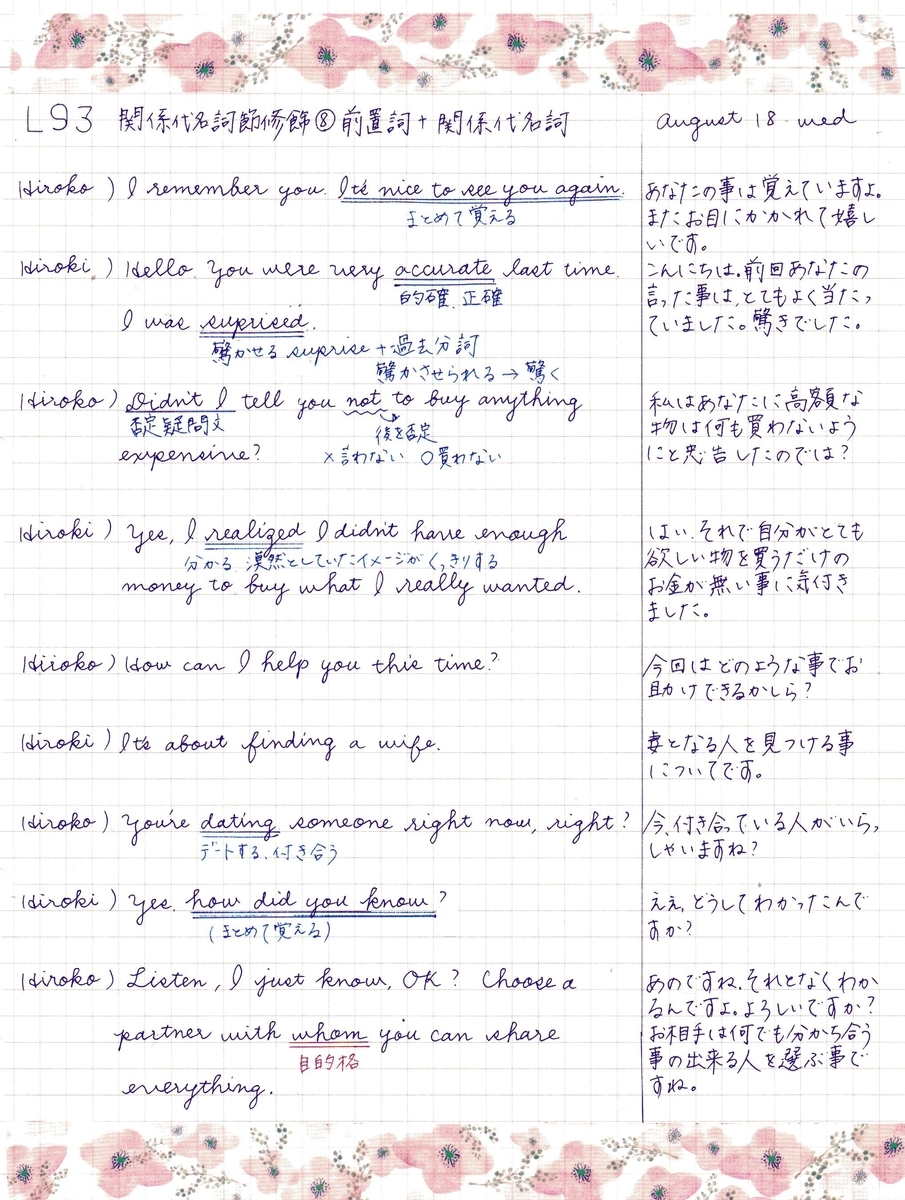 L93 関係代名詞節修飾⑧前置詞+関係代名詞
august 18 wed
Hiroko) I remember you. It's nice to see you again.
まとめて覚える
あなたの事は覚えていますよ。
またお目にかかれて嬉し
いです。
Hiroki) Hello. You were very accurate last time.
的確、正確
I was suprised.
驚かせる suprise+過去分詞
驚かさせられる→驚く
こんにちは。前回あなたの
言った事は、とてもよく当たっ
ていました。驚きでした。
Hiroko) Didn't I tell you not to buy anything
否定疑問文
後を否定
expensive?
×言わない ○買わない
私はあなたに高額な
物は何も買わないよう
にと忠告したのでは?
Hiroki) Yes, I realized I didn't have enough
分かる、漠然としていたイメージがくっきりする
money to buy what I really wanted.
はい、それで自分がとても
欲しい物を買うだけの
お金が無い事に気付き
ました。
Hiroko) How can I help you this time?
今回はどのような事でお
助けできるかしら?
Hiroki) It's about finding a wife.
妻となる人を見つける事
についてです。
Hiroko) You're dating someone right now, right?
デートする、付き合う
今、付き合っている人がいらっ
しゃいますね?
Hiroki) Yes, how did you know?
(まとめて覚える)
ええ、どうしてわかったんで
すか?
Hiroko) Listen, I just know, OK? Choose a
partner with whom you can share
目的格
everything.
あのですね、それとなくわか
るんですよ。よろしいですか?
お相手は何でも分かち合う
事の出来る人を選ぶ事で
すね。